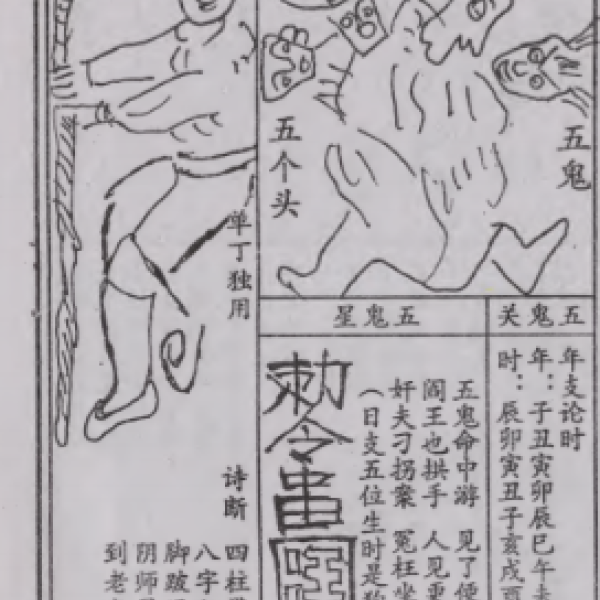 五鬼
五个头
五鬼关
年支论时
年：子丑寅卯辰巳午未
时：辰卯寅丑子亥戌酉
五鬼星
五鬼命中游　见了便
阎王也拱手　人见重
奸夫刁拐案　冤枉坐
（日支五位生时是
勅令
单丁独用
诗断
四柱
八字
脚跛
阴师
到老